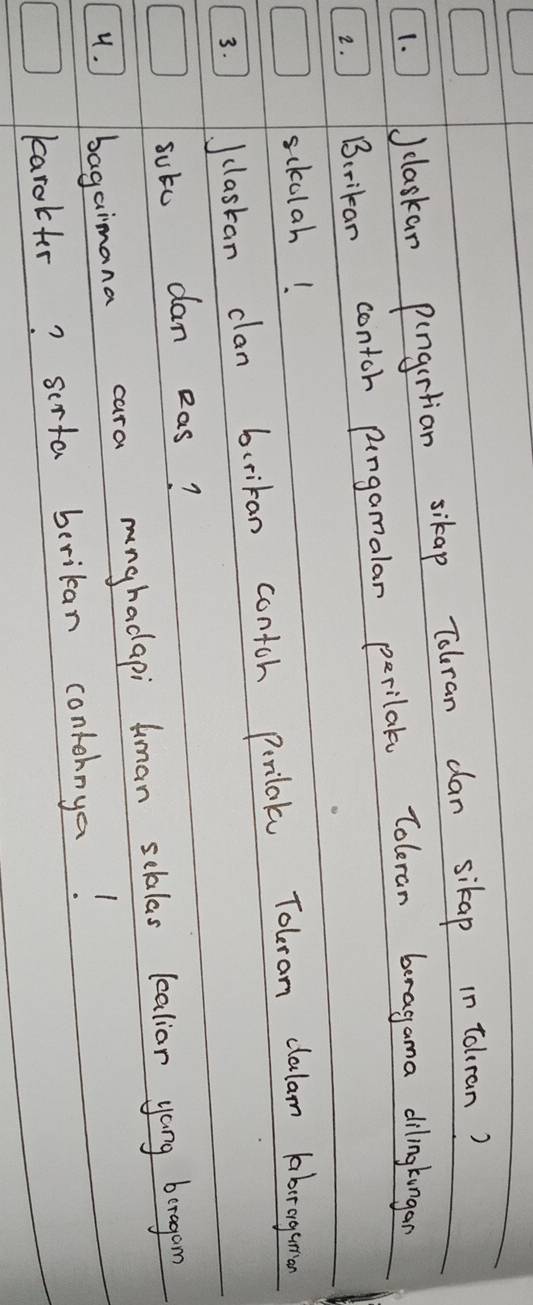 1. Jelaskan pengertian sikap Toleran dan sikap in toleran?
2. Berikan contoh pengamalan perilaku Toleran beragama dilingkungan
sekolah!
3. Jelaskan dan berikan contoh perilaku Toleram dalam keberagaman
suku dan Ras?
4. bagaimana cara menghadapi teman sekelas kalian yang beragam
karakter? serta berikan contohnya!